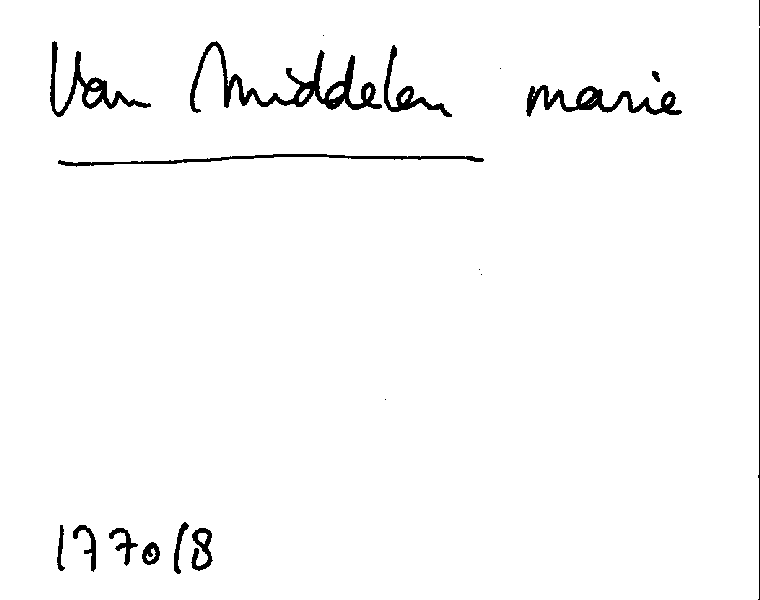 Van Middelen marie
1770/8